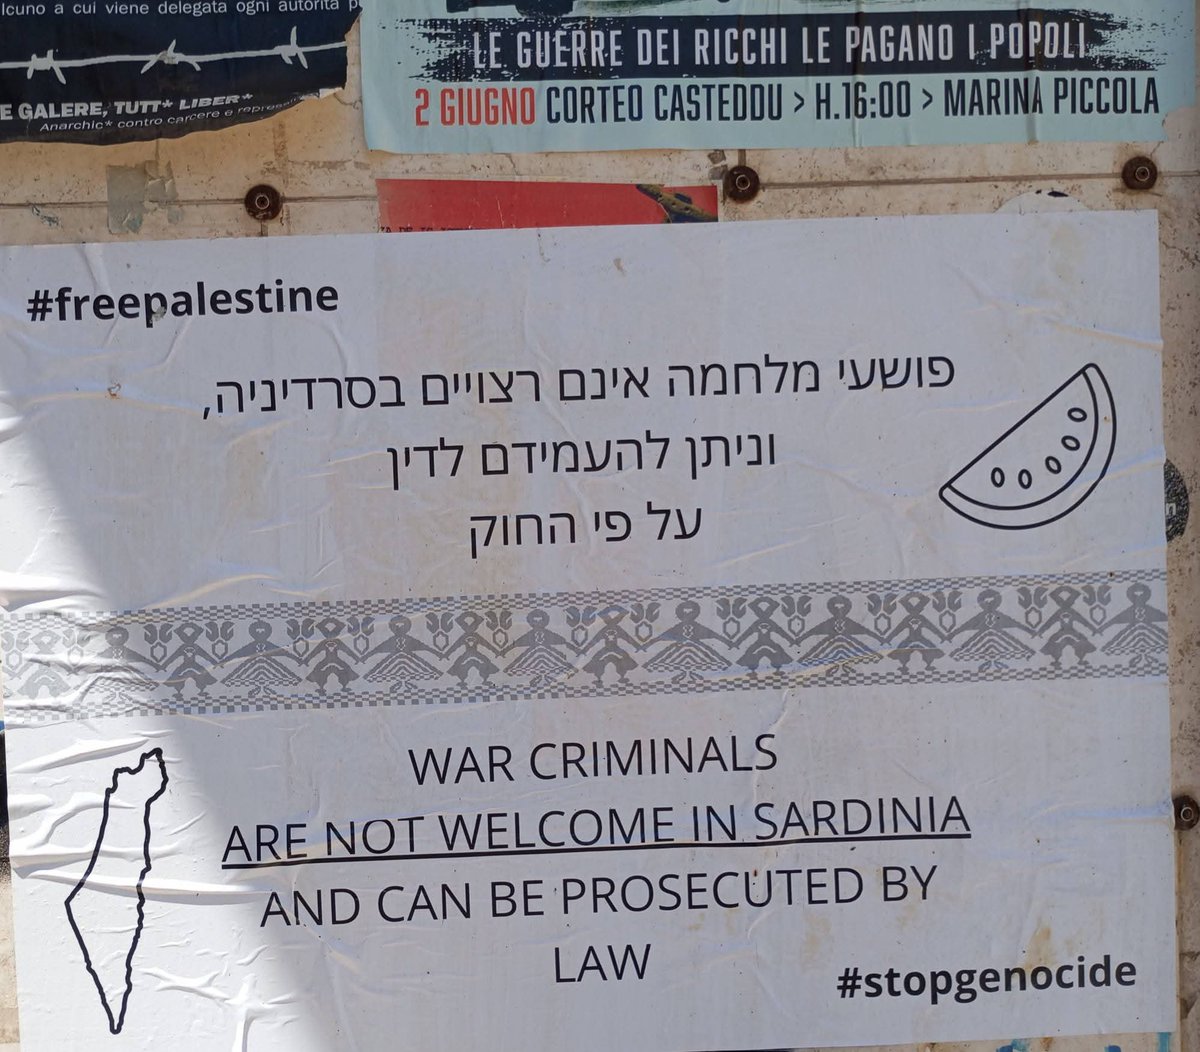 lcuno a cui viene delegata ogni autorità
E GALERE, TUTT* LIBER*
Anarchic* contro carcere e
LE GUERRE DEI RICCHI LE PAGANO I POPOLI
2 GIUGNO CORTEO CASTEDDU > H.16:00 > MARINA PICCOLA
#freepalestine
פושעי מלחמה אינם רצויים בסרדיניה,
וניתן להעמידם לדין
על פי החוק
WAR CRIMINALS
ARE NOT WELCOME IN SARDINIA
AND CAN BE PROSECUTED BY
LAW
#stopgenocide